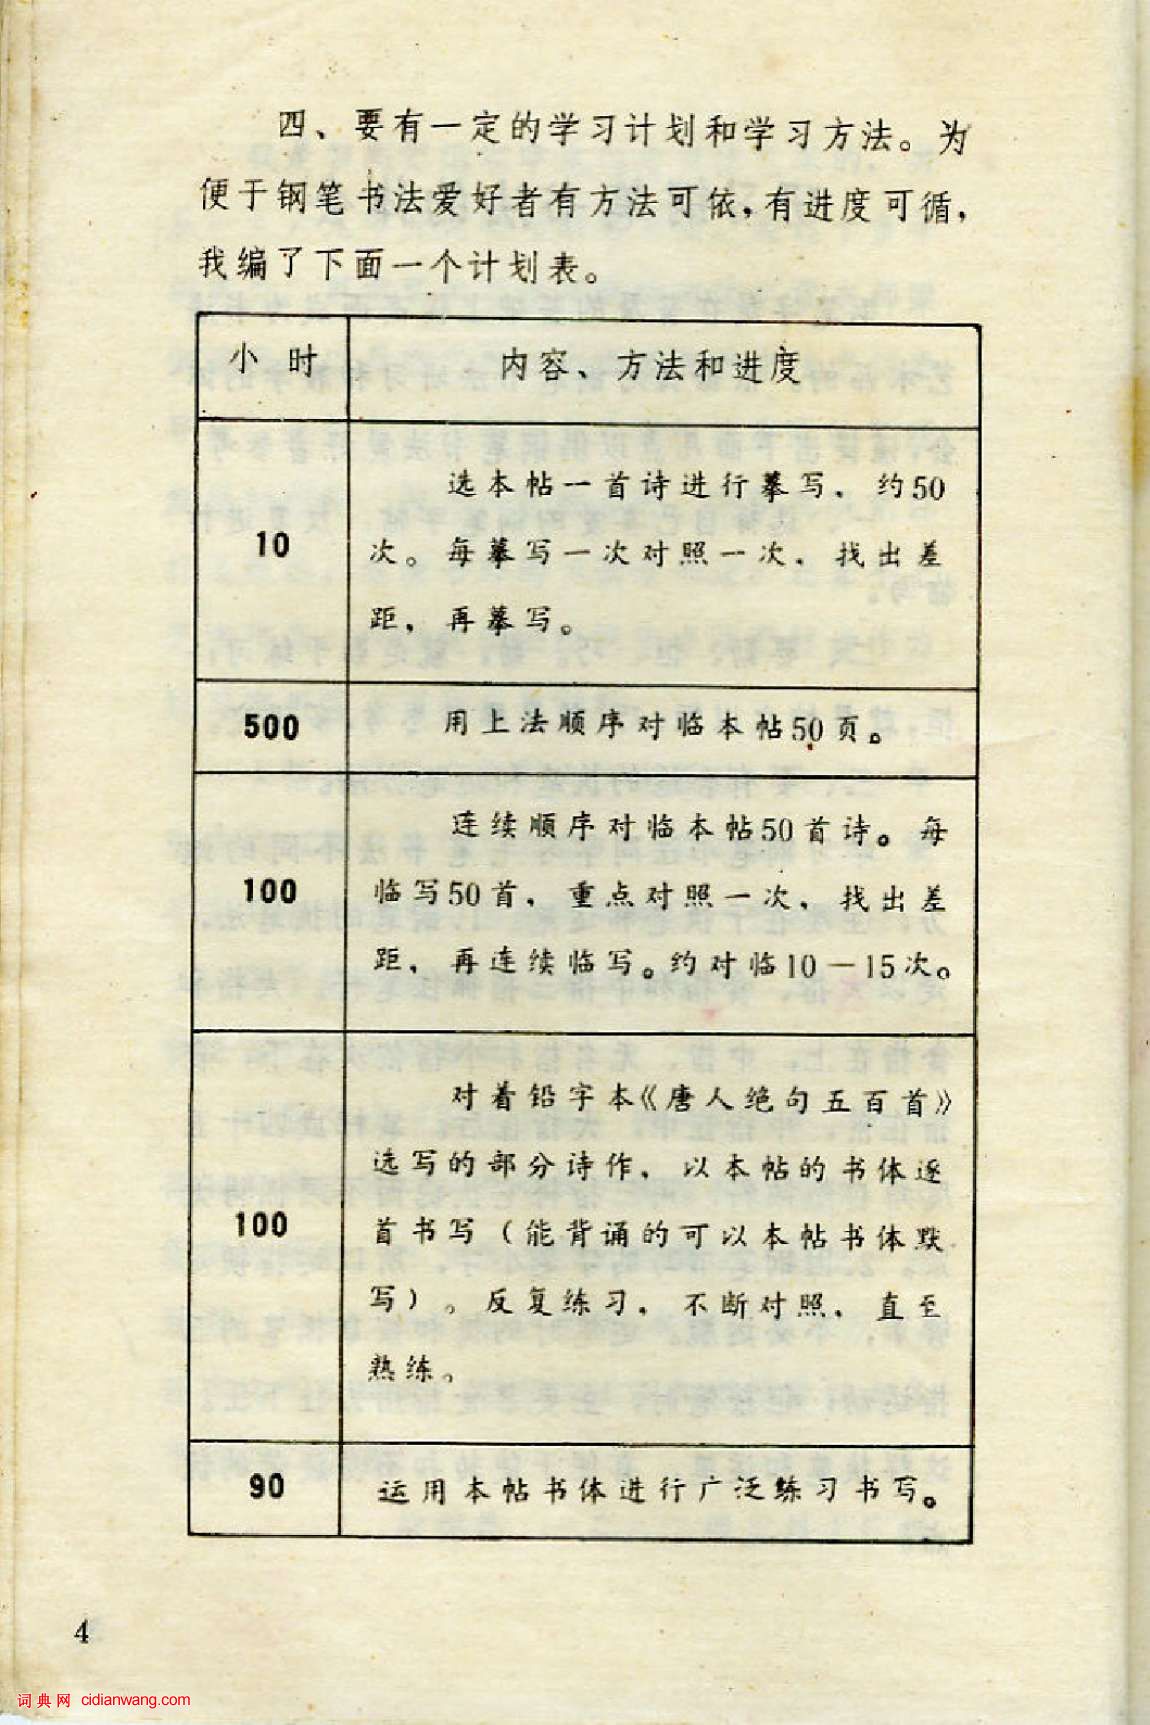 四、要有一定的学习计划和学习方法。为
便于钢笔书法爱好者有方法可依,有进度可循,
我编了下面一个计划表。
小 时
内容、方法和进度
10
选本帖一首诗进行摹写，约50
次。每摹写一次对照一次，找出差
距，再摹写。
500
用上法顺序对临本帖50页。
100
连续顺序对临本帖50首诗。每
临写50首，重点对照一次，找出差
距，再连续临写。约对临10－15次。
100
对着铅字本《唐人绝句五百首》
选写的部分诗作，以本帖的书体逐
首书写（能背诵的可以本帖书体默
写）。反复练习，不断对照，直至
熟练。
90
运用本帖书体进行广泛练习书写。
4
词典网 cidianwang.com